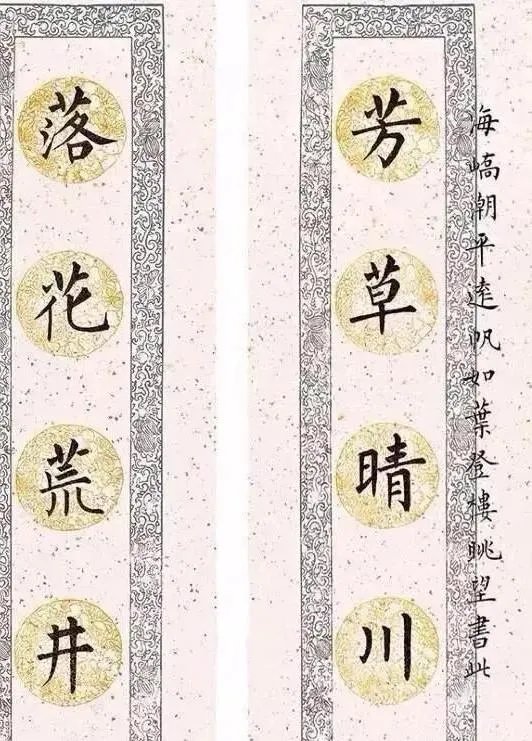 海嶠潮平遠帆如葉登樓眺望書此
芳草晴川
落花荒井